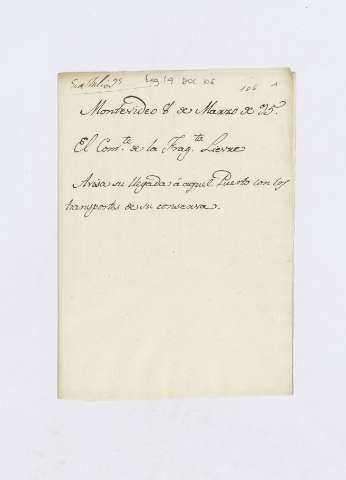 Leg 19 DOC 06
106
Montevideo 8 de Marzo de 95.
El Com.te de la Frag.ta Liebre
Avisa su llegada á aquel Puerto con los
transportes de su conserva.